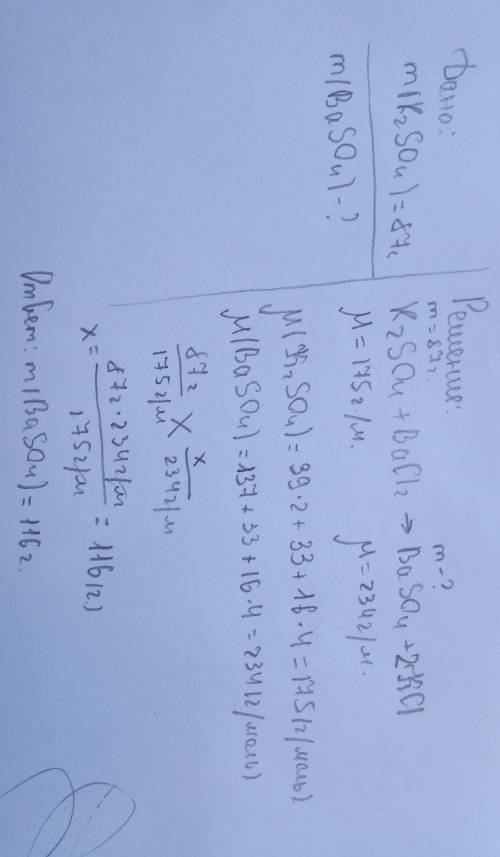 Дано:
m(K2SO4) = 87г
m(BaSO4) - ?
Решение:
m=87г. m-?
K2SO4 + BaCl2 → BaSO4 + 2KCl
M=175г/м. M=234г/м.
M(K2SO4) = 39·2 + 33 + 16·4 = 175(г/моль)
M(BaSO4) = 137 + 33 + 16·4 = 234(г/моль)
87г x
175г/м X 234г/м
x = 87г·234г/м / 175г/м = 116(г)
Ответ: m(BaSO4) = 116г.